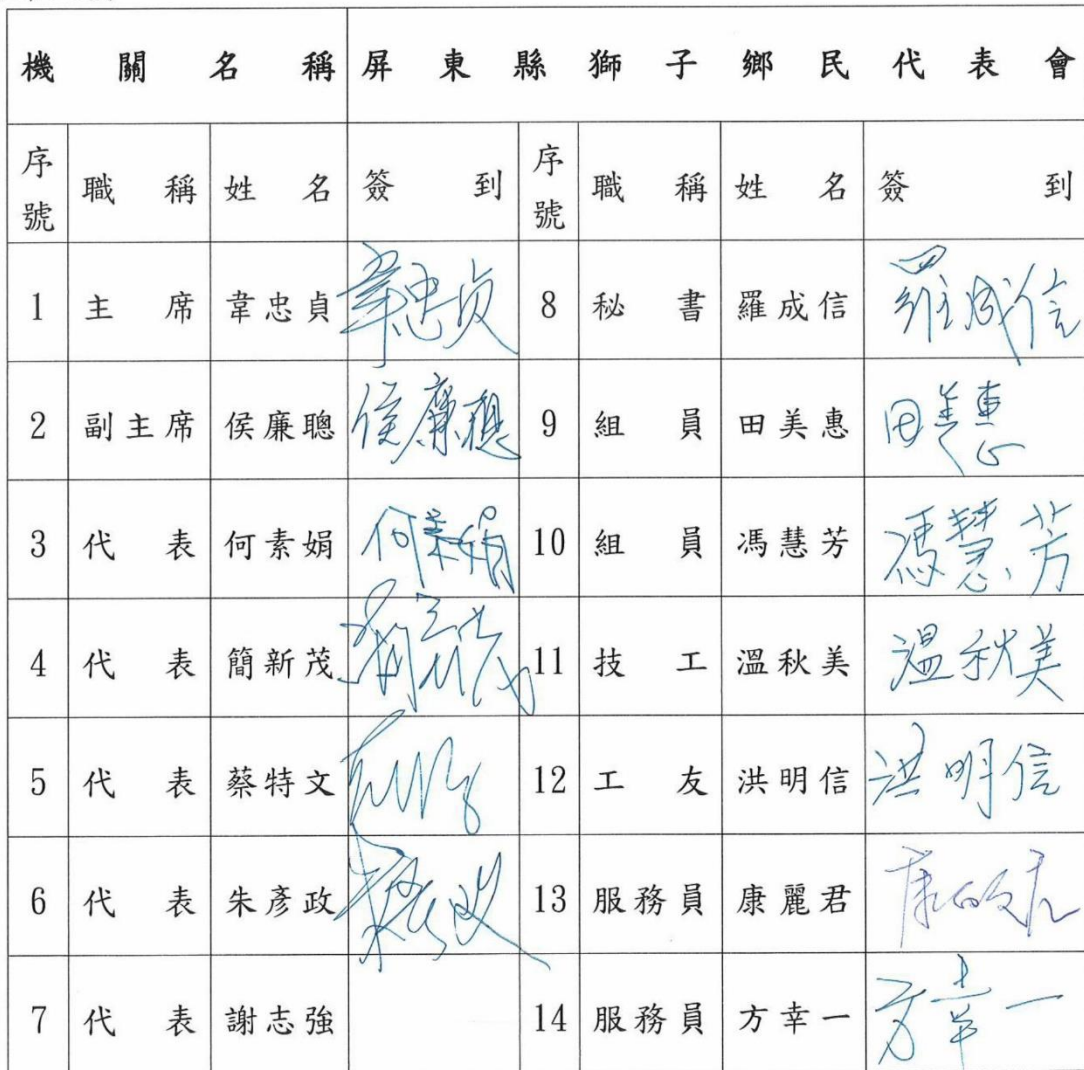 機關名稱 屏東縣獅子鄉民代表會
序號 職稱 姓名 簽到 序號 職稱 姓名 簽到
1 主席 韋忠貞 韋忠貞 8 秘書 羅成信 羅成信
2 副主席 侯廉聰 侯廉聰 9 組員 田美惠 田美惠
3 代表 何素娟 何素娟 10 組員 馮慧芳 馮慧芳
4 代表 簡新茂 簡新茂 11 技工 溫秋美 溫秋美
5 代表 蔡特文 12 工友 洪明信 洪明信
6 代表 朱彥政 朱彥政 13 服務員 康麗君
7 代表 謝志強 14 服務員 方幸一 方幸一